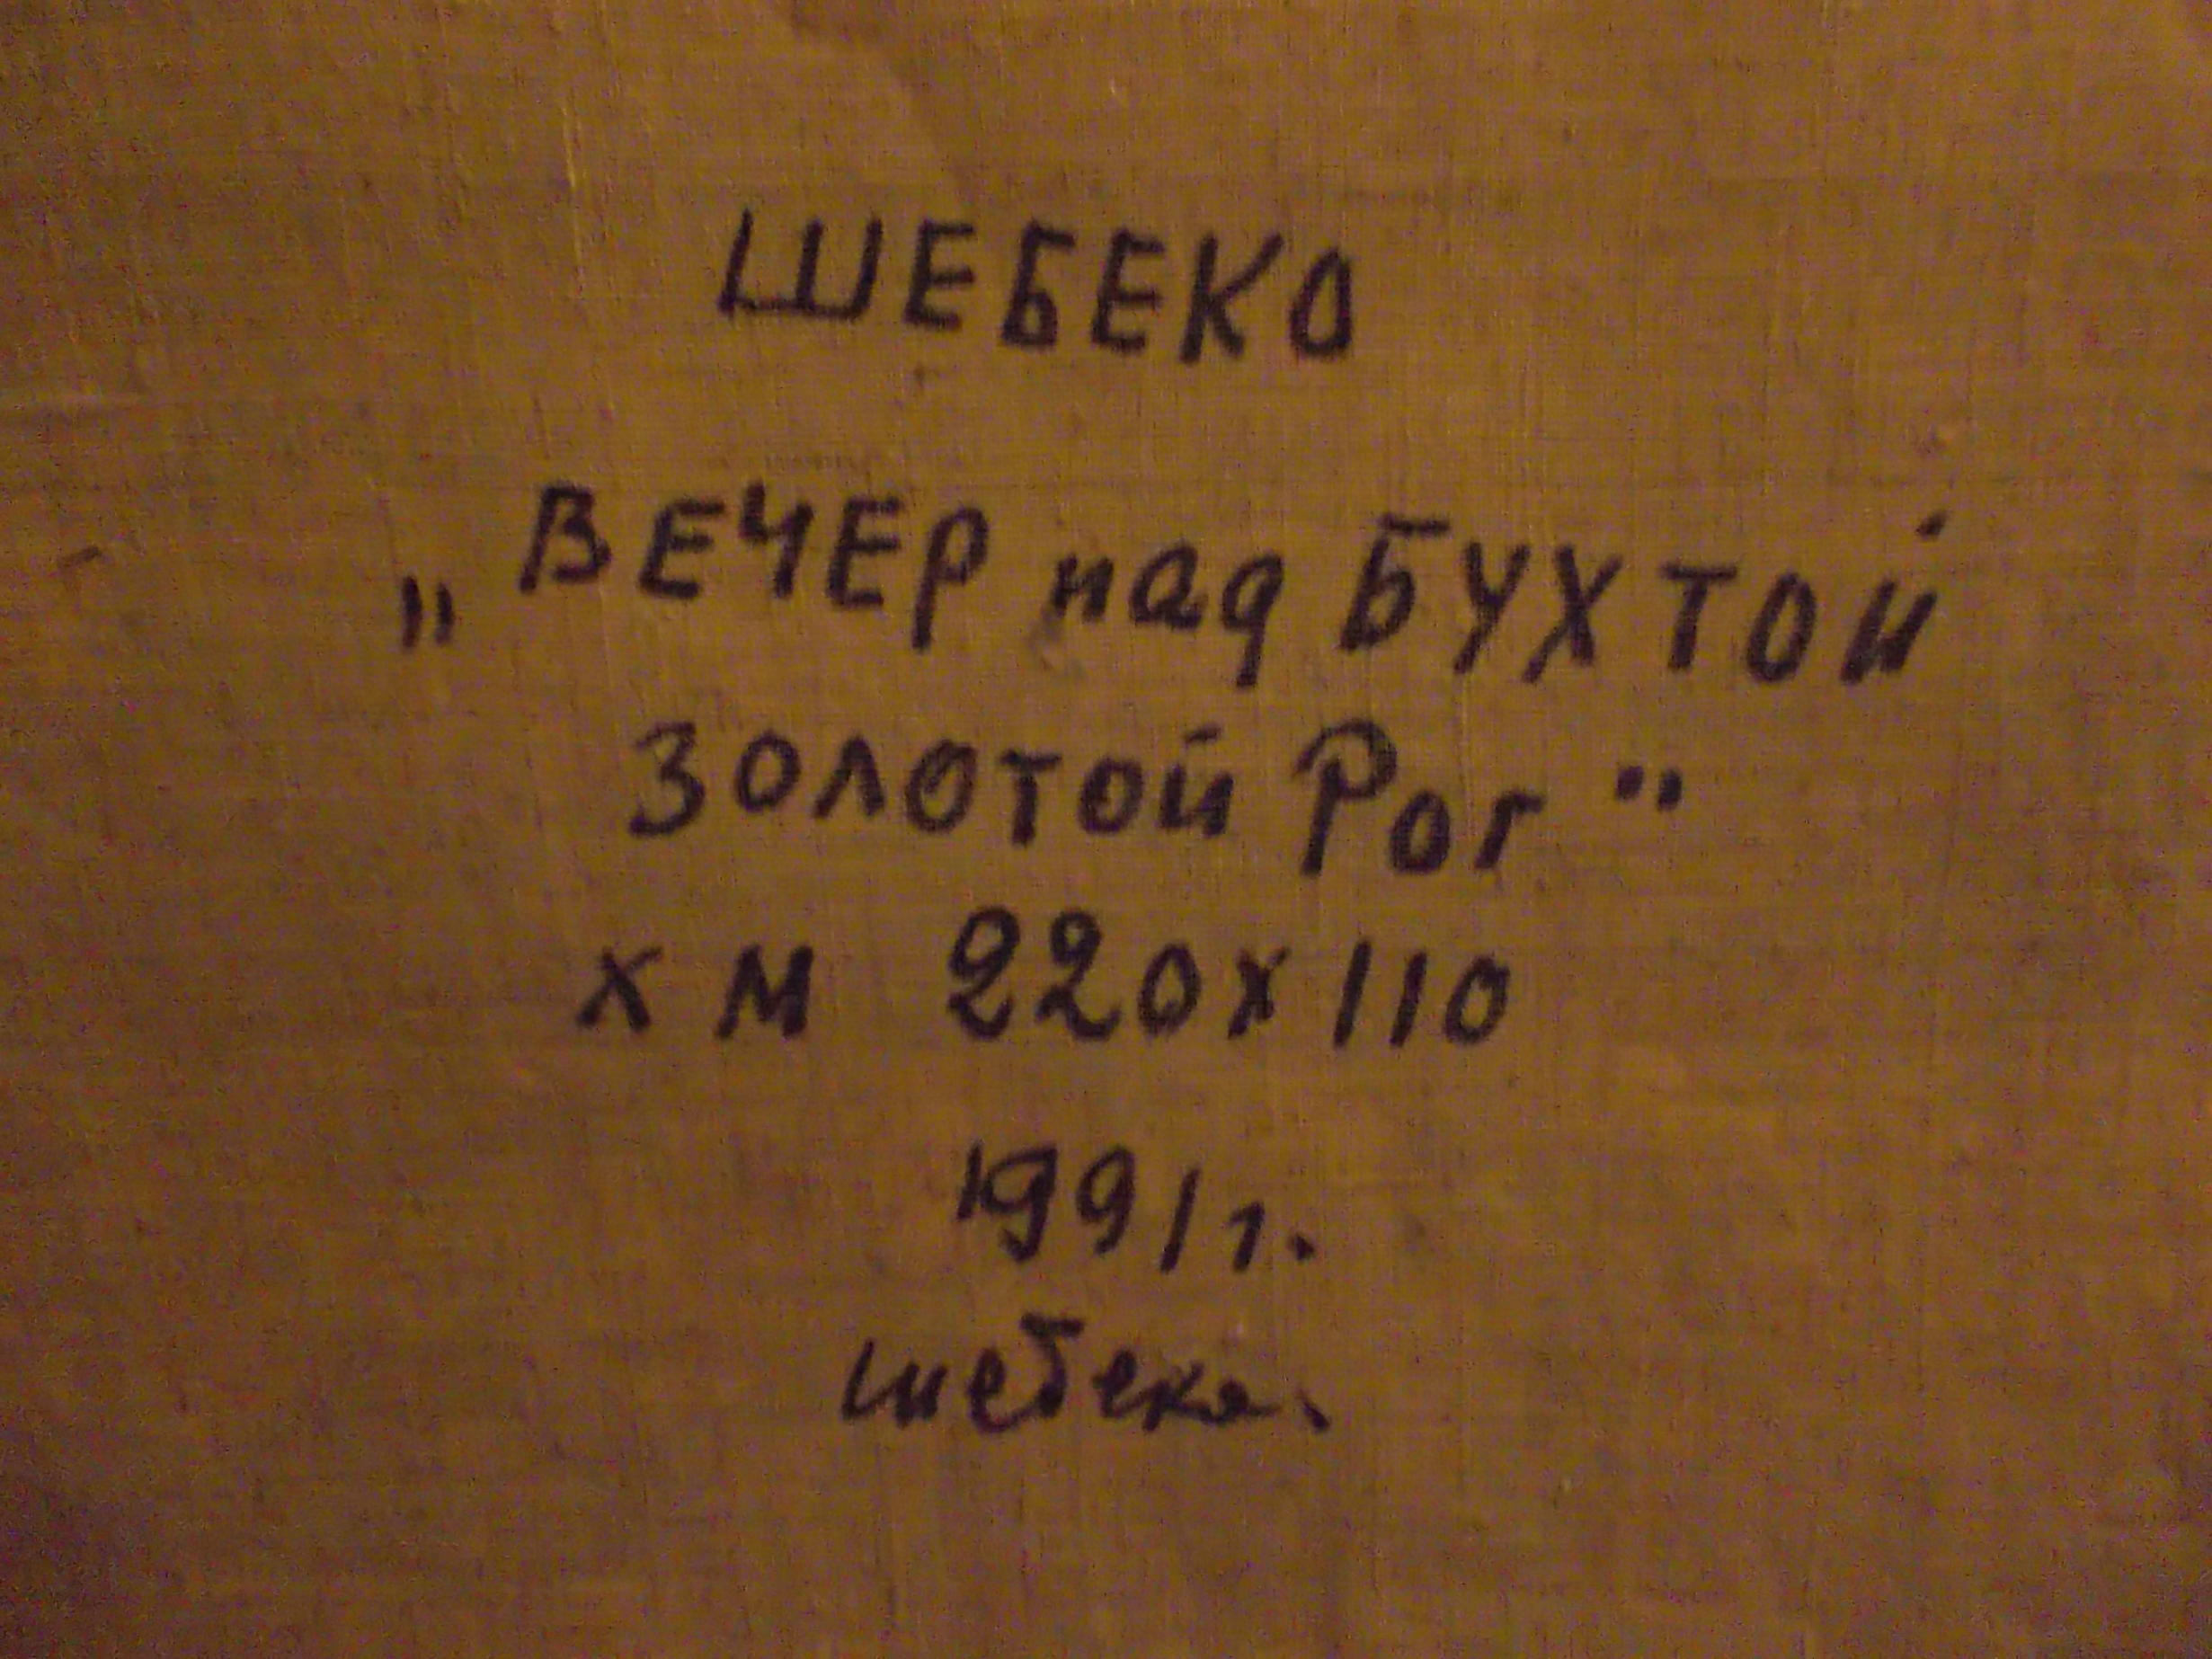 ШЕБЕКО
„ВЕЧЕР над БУХТОЙ
ЗОЛОТОЙ Рог"
Х М 220х110
1991г.
шебеко.